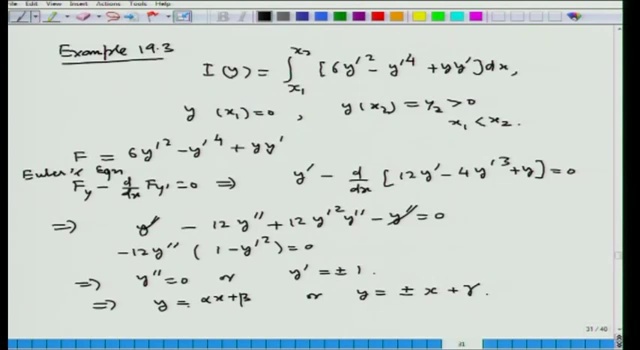 File Edit View Insert Actions Tools Help
Example 19.3
I(y) = ∫_{x₁}^{x₂} [6y'² - y'⁴ + yy'] dx,
y(x₁)=0, y(x₂) = y₂ > 0
x₁ < x₂.
F = 6y'² - y'⁴ + yy'
Euler's Eqn
F_y - d/dx F_y' = 0 ⇒ y' - d/dx [12y' - 4y'³ + y] = 0
⇒ y' - 12y'' + 12y'²y'' - y' = 0
-12y'' (1 - y'²) = 0
⇒ y'' = 0 or y' = ±1.
⇒ y = αx+β or y = ± x + γ.
31 / 40
31